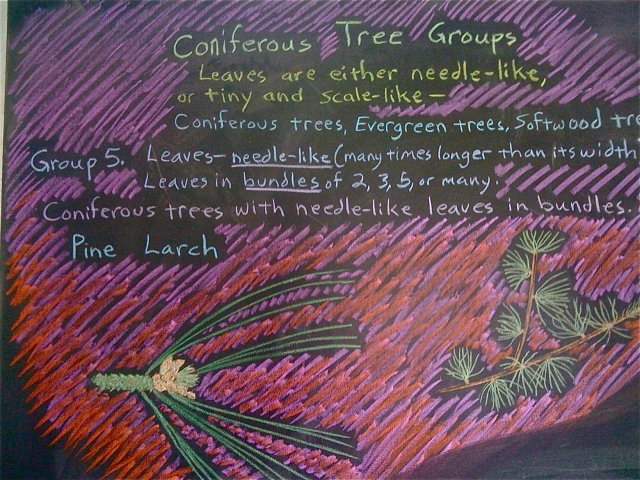 Coniferous Tree Groups
Leaves are either needle-like,
or tiny and scale-like—
Coniferous trees, Evergreen trees, Softwood tre
Group 5. Leaves- needle-like (many times longer than its width)
Leaves in bundles of 2, 3, 5, or many.
Coniferous trees with needle-like leaves in bundles.
Pine Larch